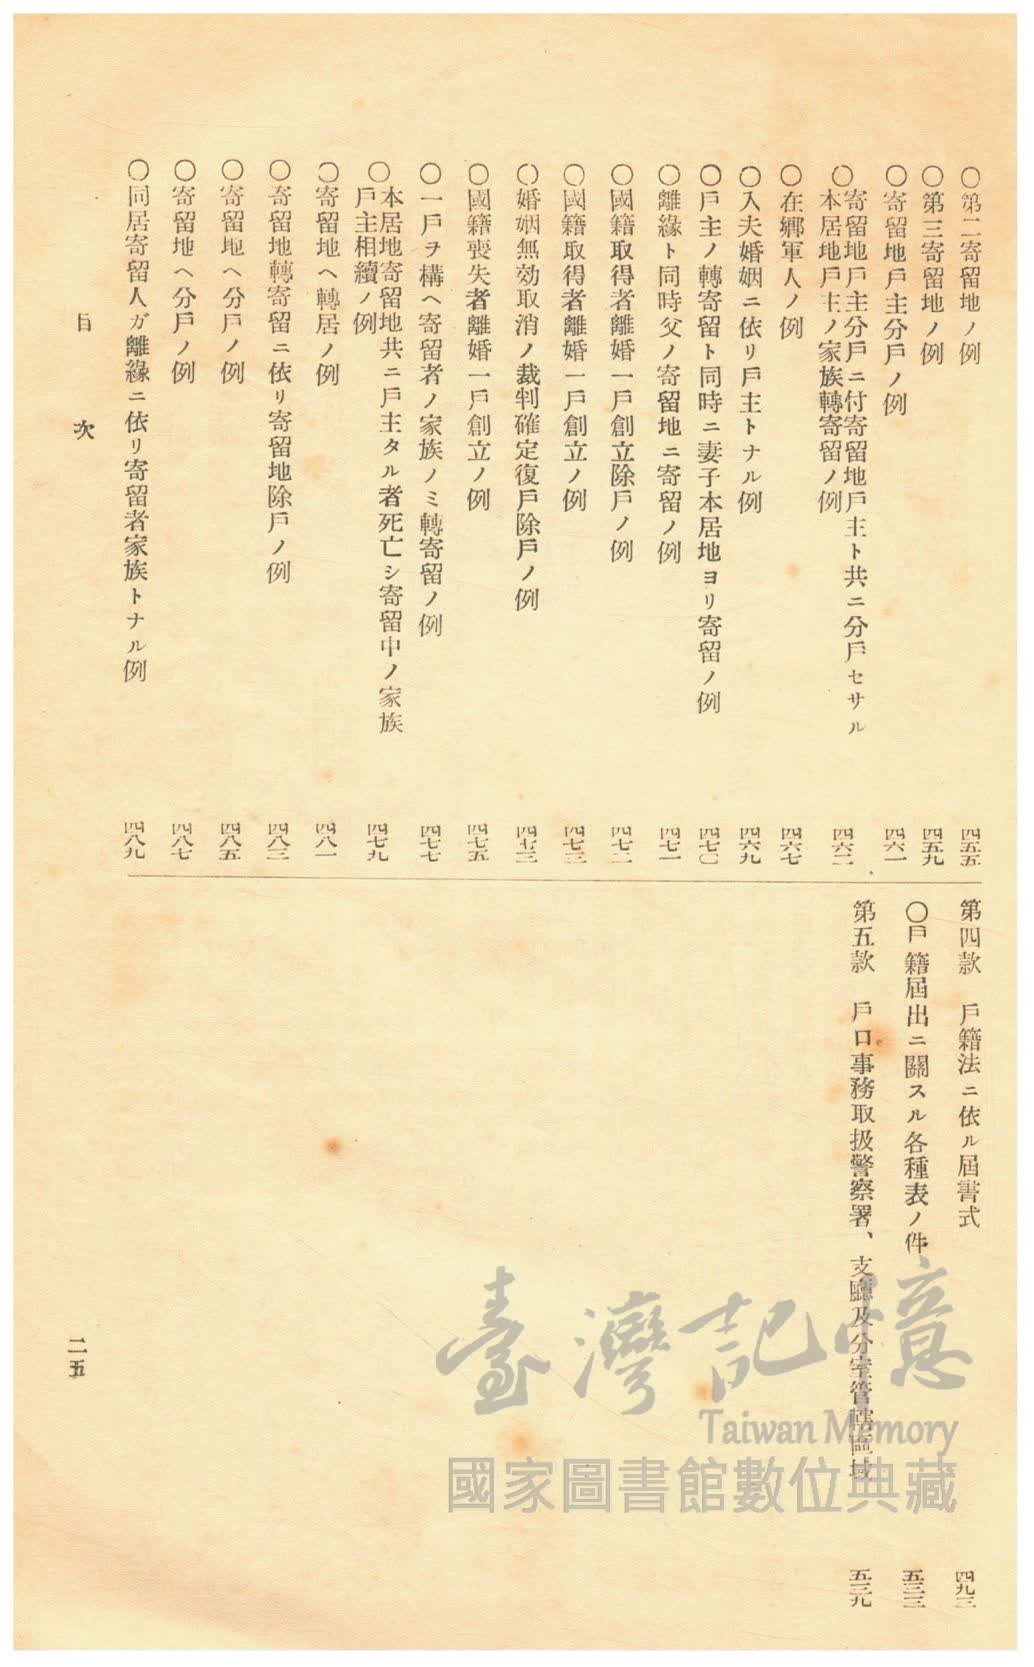 ○第二寄留地ノ例 四五五
○第三寄留地ノ例 四五九
○寄留地戶主分戶ノ例 四六一
○寄留地戶主分戶ニ付寄留地戶主ト共ニ分戶セサル
本居地戶主ノ家族轉寄留ノ例 四六二
○在鄕軍人ノ例 四六七
○入夫婚姻ニ依リ戶主トナル例 四六九
○戶主ノ轉寄留ト同時ニ妻子本居地ヨリ寄留ノ例 四七〇
○離緣ト同時父ノ寄留地ニ寄留ノ例 四七一
○國籍取得者離婚一戶創立除戶ノ例 四七二
○國籍取得者離婚一戶創立ノ例 四七三
○婚姻無効取消ノ裁判確定復戶除戶ノ例 四七三
○國籍喪失者離婚一戶創立ノ例 四七五
○一戶ヲ構ヘ寄留者ノ家族ノミ轉寄留ノ例 四七七
○本居地寄留地共ニ戶主タル者死亡シ寄留中ノ家族
戶主相續ノ例 四七九
○寄留地ヘ轉居ノ例 四八一
○寄留地轉寄留ニ依リ寄留地除戶ノ例 四八三
○寄留地ヘ分戶ノ例 四八五
○寄留地ヘ分戶ノ例 四八七
○同居寄留人ガ離緣ニ依リ寄留者家族トナル例 四八九
第四款 戶籍法ニ依ル屆書式 四九三
○戶籍屆出ニ關スル各種表ノ件 五三三
第五款 戶口事務取扱警察署、支廳及分室管轄區域 五三九
目次
二五
臺灣記憶
Taiwan Memory
國家圖書館數位典藏